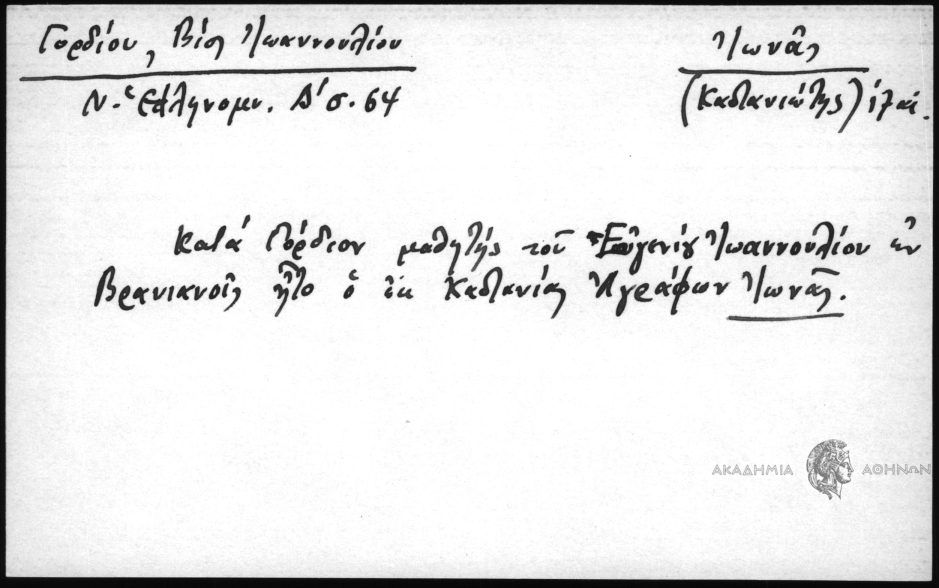 Γορδίου, Βίος Ἰωαννουλίου
Ν. Ἑλληνομν. Δ΄ σ. 64
Ἰωνᾶς
(Καστανιώτης) 17 αἰ.
Κατά Γόρδιον μαθητής τοῦ Εὐγενίου Ἰωαννουλίου ἐν
Βρανιανοῖς ἦτο ὁ ἐκ Καστανίας Ἀγράφων Ἰωνᾶς.
ΑΚΑΔΗΜΙΑ ΑΘΗΝΩΝ